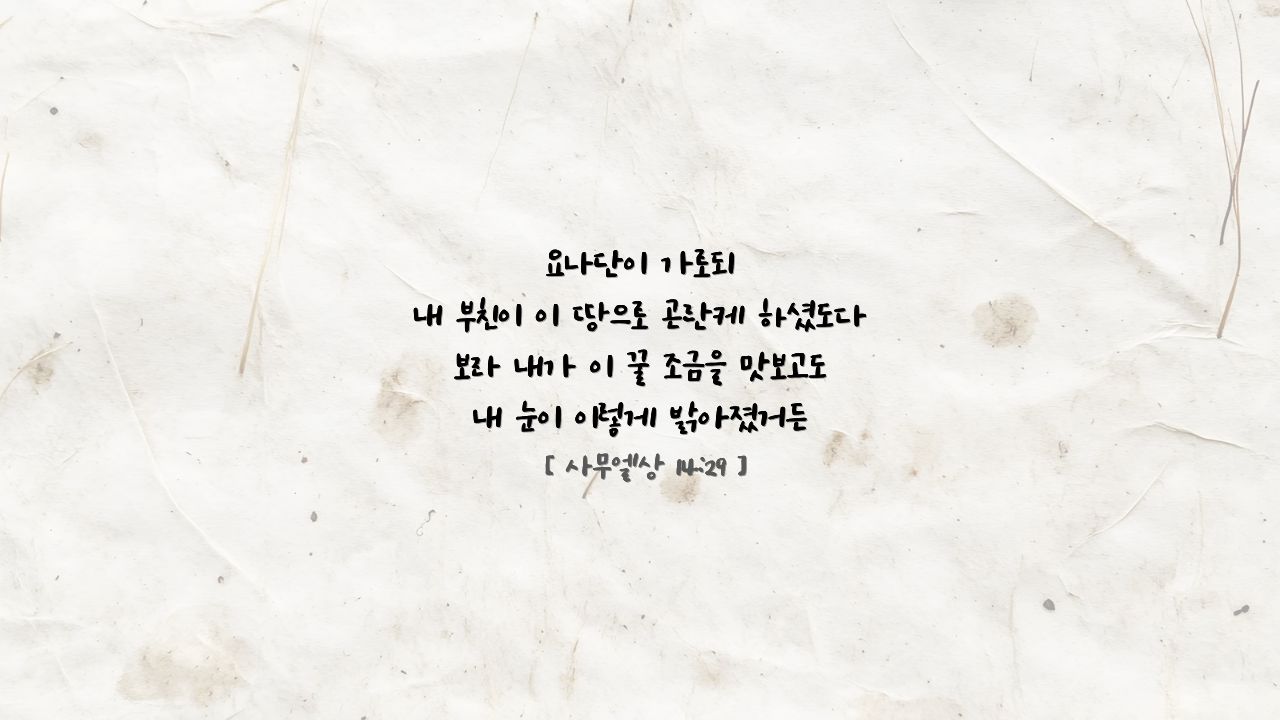 요나단이 가로되
내 부친이 이 땅으로 곤란케 하셨도다
보라 내가 이 꿀 조금을 맛보고도
내 눈이 이렇게 밝아졌거든
[ 사무엘상 14:29 ]